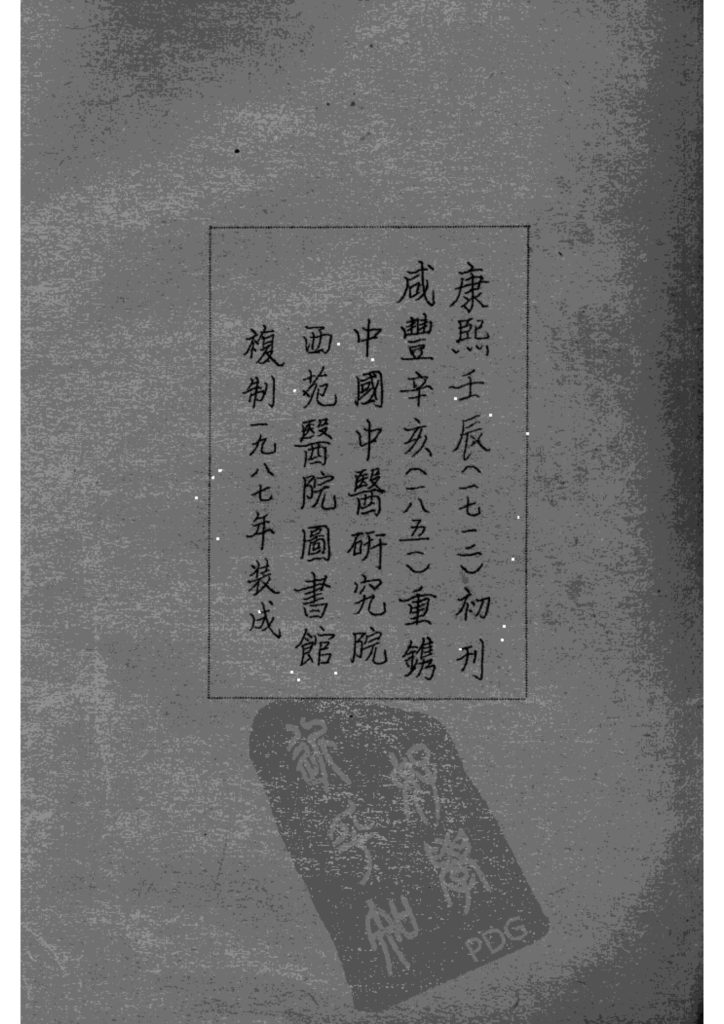 康熙壬辰(一七一二)初刊
咸豐辛亥(一八五一)重鐫
中國中醫研究院
西苑醫院圖書館
複制一九八七年装成
PDG